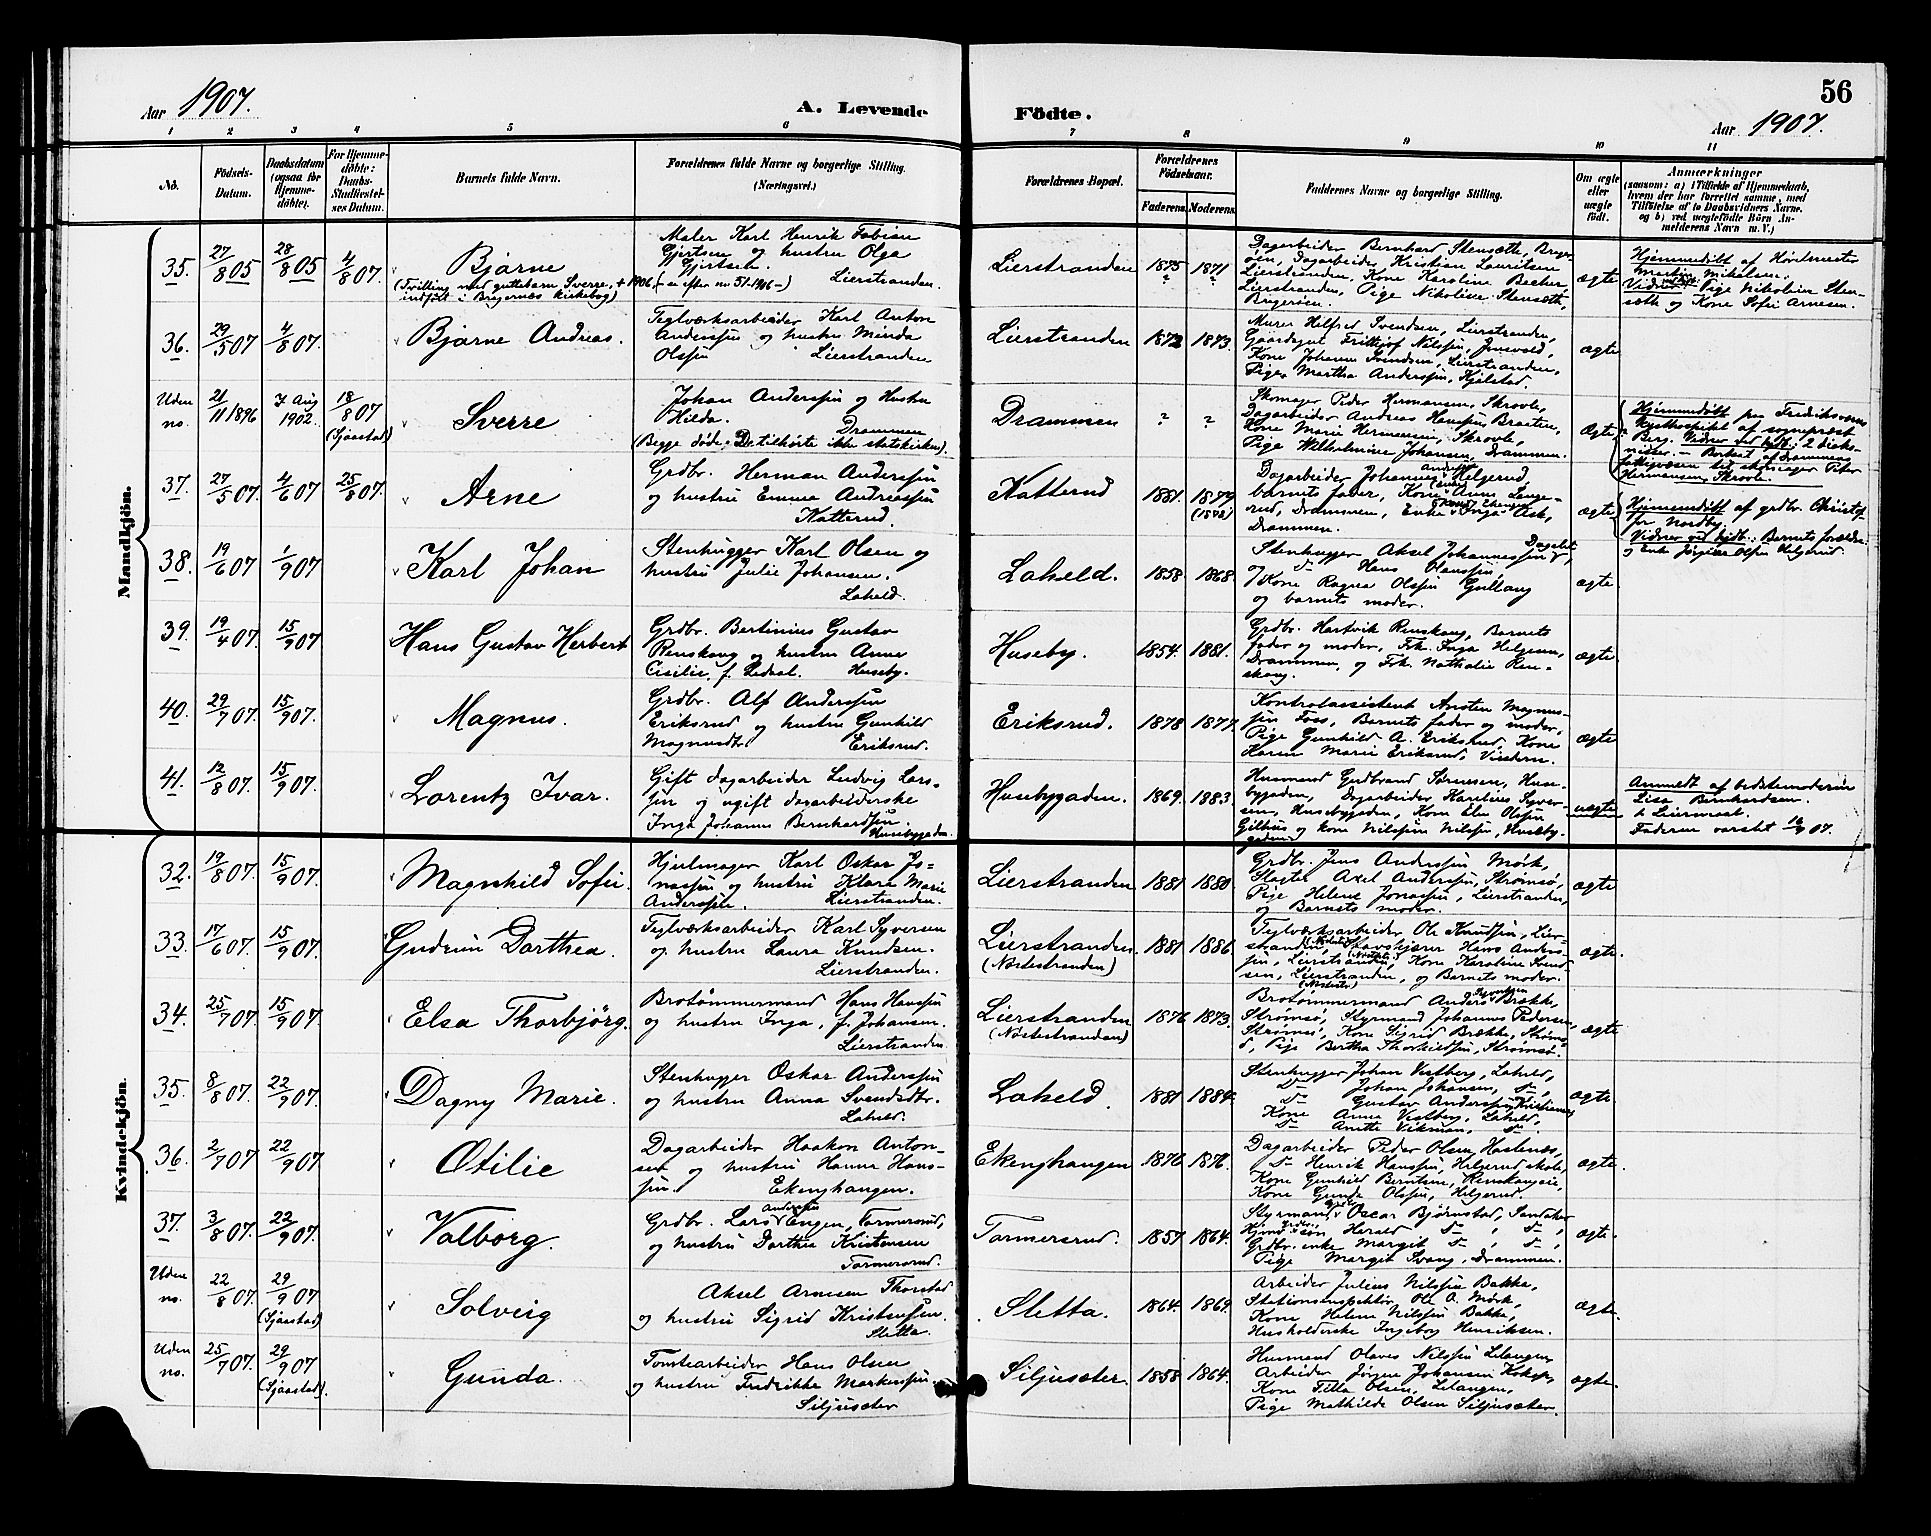 56
Aar 1907. A. Levende Födte. Aar 1907.
1 2 3 4 5 6 7 8 9 10 11
No.
Födsels-
Datum.
Daabsdatum
(ogsaa for
Hjemme-
döbte).
For Hjemme-
döbte:
Daabs-
Stadfæstel-
ses Datum.
Barnets fulde Navn.
Forældrenes fulde Navne og borgerlige Stilling.
(Næringsvei.)
Forældrenes Bopæl.
Forældrenes
Födselsaar.
Faderens. Moderens.
Faddernes Navne og borgerlige Stilling.
Om ægte
eller
uægte
födt.
Anmærkninger
(saasom: a) i Tilfælde af Hjemmedaab,
hvem der har forrettet samme, med
Tilföielse af to Daabsvidners Navne,
og b) ved uægtefödte Börn An-
melderens Navn m. V.)
Mandkjön.
35. 27/8 05 28/8 05 4/8 07. Bjarne
(Tvilling med guttebarn Sverre, + 1906,
indført i Bragernes kirkebog)
Maler Karl Henrik Fabian
Gjertsen og hustru Olga
Gjertsen.
Lierstranden.
Lierstranden 1875 1871
Dagarbeider Bernhard Stensæth, Brag-
øen, Dagarbeider Kristian Lauritsen
Lierstranden, Kone Karoline Becher,
Lierstranden, Pige Nikoline Stensæth,
ægte
Hjemmedöbt af
Martin Mikalsen.
Vidner: Pige Nikoline Sten-
sæth og Kone Sofie Arnesen.
36. 29/5 07 4/8 07. Bjarne Andreas.
Teglværksarbeider Karl Anton
Anderssen og hustru Minda
Olsen Lierstranden
Lierstranden 1872 1873.
Murer Helfred Svendsen, Lierstranden,
Gaardegut Frithjof Nilssen,
Kone Johanne Svendsen, Lierstranden,
Pige Martha Anderssen, Kjelstad.
ægte
Uden
no.
21/11 1896 7 Aug
1902. 18/8 07
(Sjaastad) Sverre
Johan Anderssen og Hustru
Hilda. Drammen
(Begge døde. De tilhørte ikke statskirken).
Drammen ? ?
Skomager Peder Hermansen, Skrovle,
Dagarbeider Andreas Hanssen, Braaten,
Kone Marie Hermansen, Skrovle,
Pige Wilhelmine Johansen, Drammen.
Ægte
Hjemmedöbt paa Fredriksværns
Kysthospital af sogneprest
Berg. Vidner ved hjdb.: 2 diako-
nisser. - Bortsat af Drammens
fattigvæsen til skomager Peter
Hermansen Skrovle.
37. 27/5 07. 4/6 07 25/8 07. Arne
Grdbr. Herman Anderssen
og hustru Emma Andreassen
Katterud.
Katterud 1881. 1879
Dagarbeider Johannes Helgerud,
barnets fader, Kone Anna Lange-
rud, Drammen, Enke Inga Ask,
Drammen.
ægte
Hjemmedöbt af grdbr. Christof-
fer Nordby.
Vidner ved hjdb.: Barnets forældre
og Enke Jørgine Olsen Helgerud.
38. 19/6 07 1/9 07 Karl Johan
Stenhugger Karl Olsen og
hustru Julie Johansen.
Laheld.
Laheld. 1858. 1868.
Stenhugger Aksel Johannessen,
og Dagarb. Hans Olaussen,
Kone Ragna Olsen Gullaug
og barnets moder.
ægte
39. 19/4 07. 15/9 07 Hans Gustav Herbert
Grdbr. Bertinius Gustav
Renskaug og hustru Anne
Cicilie, f. Redaal. Huseby.
Huseby. 1854. 1881.
Grdbr. Hartvik Renskaug, Barnets
fader og moder, Frk. Inga Helgesen,
Drammen, og Frk. Nathalie Ren-
skaug.
ægte
40. 29/7 07. 15/9 07. Magnus.
Grdbr. Alf Anderssen
Eriksrud og hustru Gunhild
Magnusdtr. Eriksrud.
Eriksrud. 1878 1877.
Kontrolassistent Ansten Magnus-
sen Foss, Barnets fader og moder,
Pige Gunhild A. Eriksrud, Kone
Karen Marie Eriksrud, Vindern.
ægte
41. 12/8 07. 15/9 07. Lorentz Ivar.
Gift dagarbeider Ludvig Lars-
sen og ugift dagarbeiderske
Inga Johanne Bernhardsen.
Husebygaden.
Husebygaden. 1869. 1883.
Husmand Gudbrand Sørensen, Huse-
bygaden, Dagarbeider Karelius Syver-
sen, Husebygaden, Kone Elen Olsen
Gilhus og kone Nilssen, Huseby-
gaden.
uægte
Anmeldt af bedstemoderen
Lisa Bernhardsen.
Faderen varslet 16/9 07.
Kvindekjön.
32. 19/8 07. 15/9 07. Magnhild Sofie.
Hjulmager Karl Oskar Jo-
nassen og hustru Klara Marie
Anderssen. Lierstranden.
Lierstranden 1881 1880.
Grdbr. Jens Anderssen Mørk,
Slagter Axel Anderssen, Strømsø,
Pige Helene Jonassen, Lierstranden,
og Barnets moder.
ægte
33. 17/6 07. 15/9 07. Gudrun Dorthea.
Teglværksarbeider Karl Syversen
og hustru Laura Knudsen.
Lierstranden.
Lierstranden
(Nøstestranden) 1881 1886.
Teglværksarbeider Ole Knudsen, Lier-
stranden, Hans Anders-
sen, Lierstranden, Kone Karoline Knud-
sen, Lierstranden, og Barnets moder.
ægte.
34. 25/7 07. 15/9 07. Elsa Thorbjörg.
Brotømmermand Hans Hanssen
og hustru Inga, f. Johansen.
Lierstranden
Lierstranden
(Nøstestranden) 1876 1873.
Brotømmermand Anders Brække,
Strømsø, Styrmand Johannes Pedersen,
Strømsø, Kone Sigrid Brække, Strøms-
ø, Pige Bertha Thorkildsen, Strømsø.
ægte
35. 8/8 07. 22/9 07. Dagny Marie.
Stenhugger Oskar Anderssen
og hustru Anna Svendsdtr.
Laheld.
Laheld. 1881 1884.
Stenhugger Johan Vestberg, Laheld,
Do Johan Johansen, do,
Do Gustav Anderssen,
Kone Anna Vestberg, Laheld,
Do Anette Vikman, do
ægte.
36. 2/7 07 22/9 07 Otilie
Dagarbeider Haakon Anton-
sen og hustru Hanna Hans-
sen. Ekenghaugen.
Ekenghaugen 1870 1870.
Dagarbeider Peder Olsen Haslenæs,
Do Henrik Hanssen, Helgerud skole,
Kone Gunhild Berntsen, Renskaugeie,
Kone Gunda Olssen, Helgerud.
ægte.
37. 3/8 07. 22/9 07. Valborg.
Grdbr. Lars Anderssen Engen, Tormersrud,
og hustru Dorthea Kristensen
Tormersrud.
Tormersrud. 1857 1864.
Styrmand Oscar Bjørnstad, Sandaker
Harald do, do,
Grdbr. enke Margit do, do,
Pige Margit Svang, Drammen.
ægte.
Uden
no.
22/8 07. 29/9 07
(Sjaastad) Solveig
Aksel Arnesen Thorstad
og hustru Sigrid Kristensen.
Sletta.
Sletta. 1864. 1869.
Arbeider Julius Nilssen Bakka,
Stationsinspektør Ole A. Mørk,
Kone Helene Nilssen Bakka,
Husholderske Ingeborg Henriksen.
ægte.
Uden
no.
25/7 07. 29/9 07
(Sjaastad). Gunda.
Tomtearbeider Hans Olsen
og hustru Fredrikke Markussen.
Siljusæter
Siljusæter 1858 1864.
Husmand Olaves Nilssen Lilangen,
Arbeider Jørgen Johansen
Kone Tilla Olsen, Lilangen,
Pige Mathilde Olsen Siljusæter.
ægte.